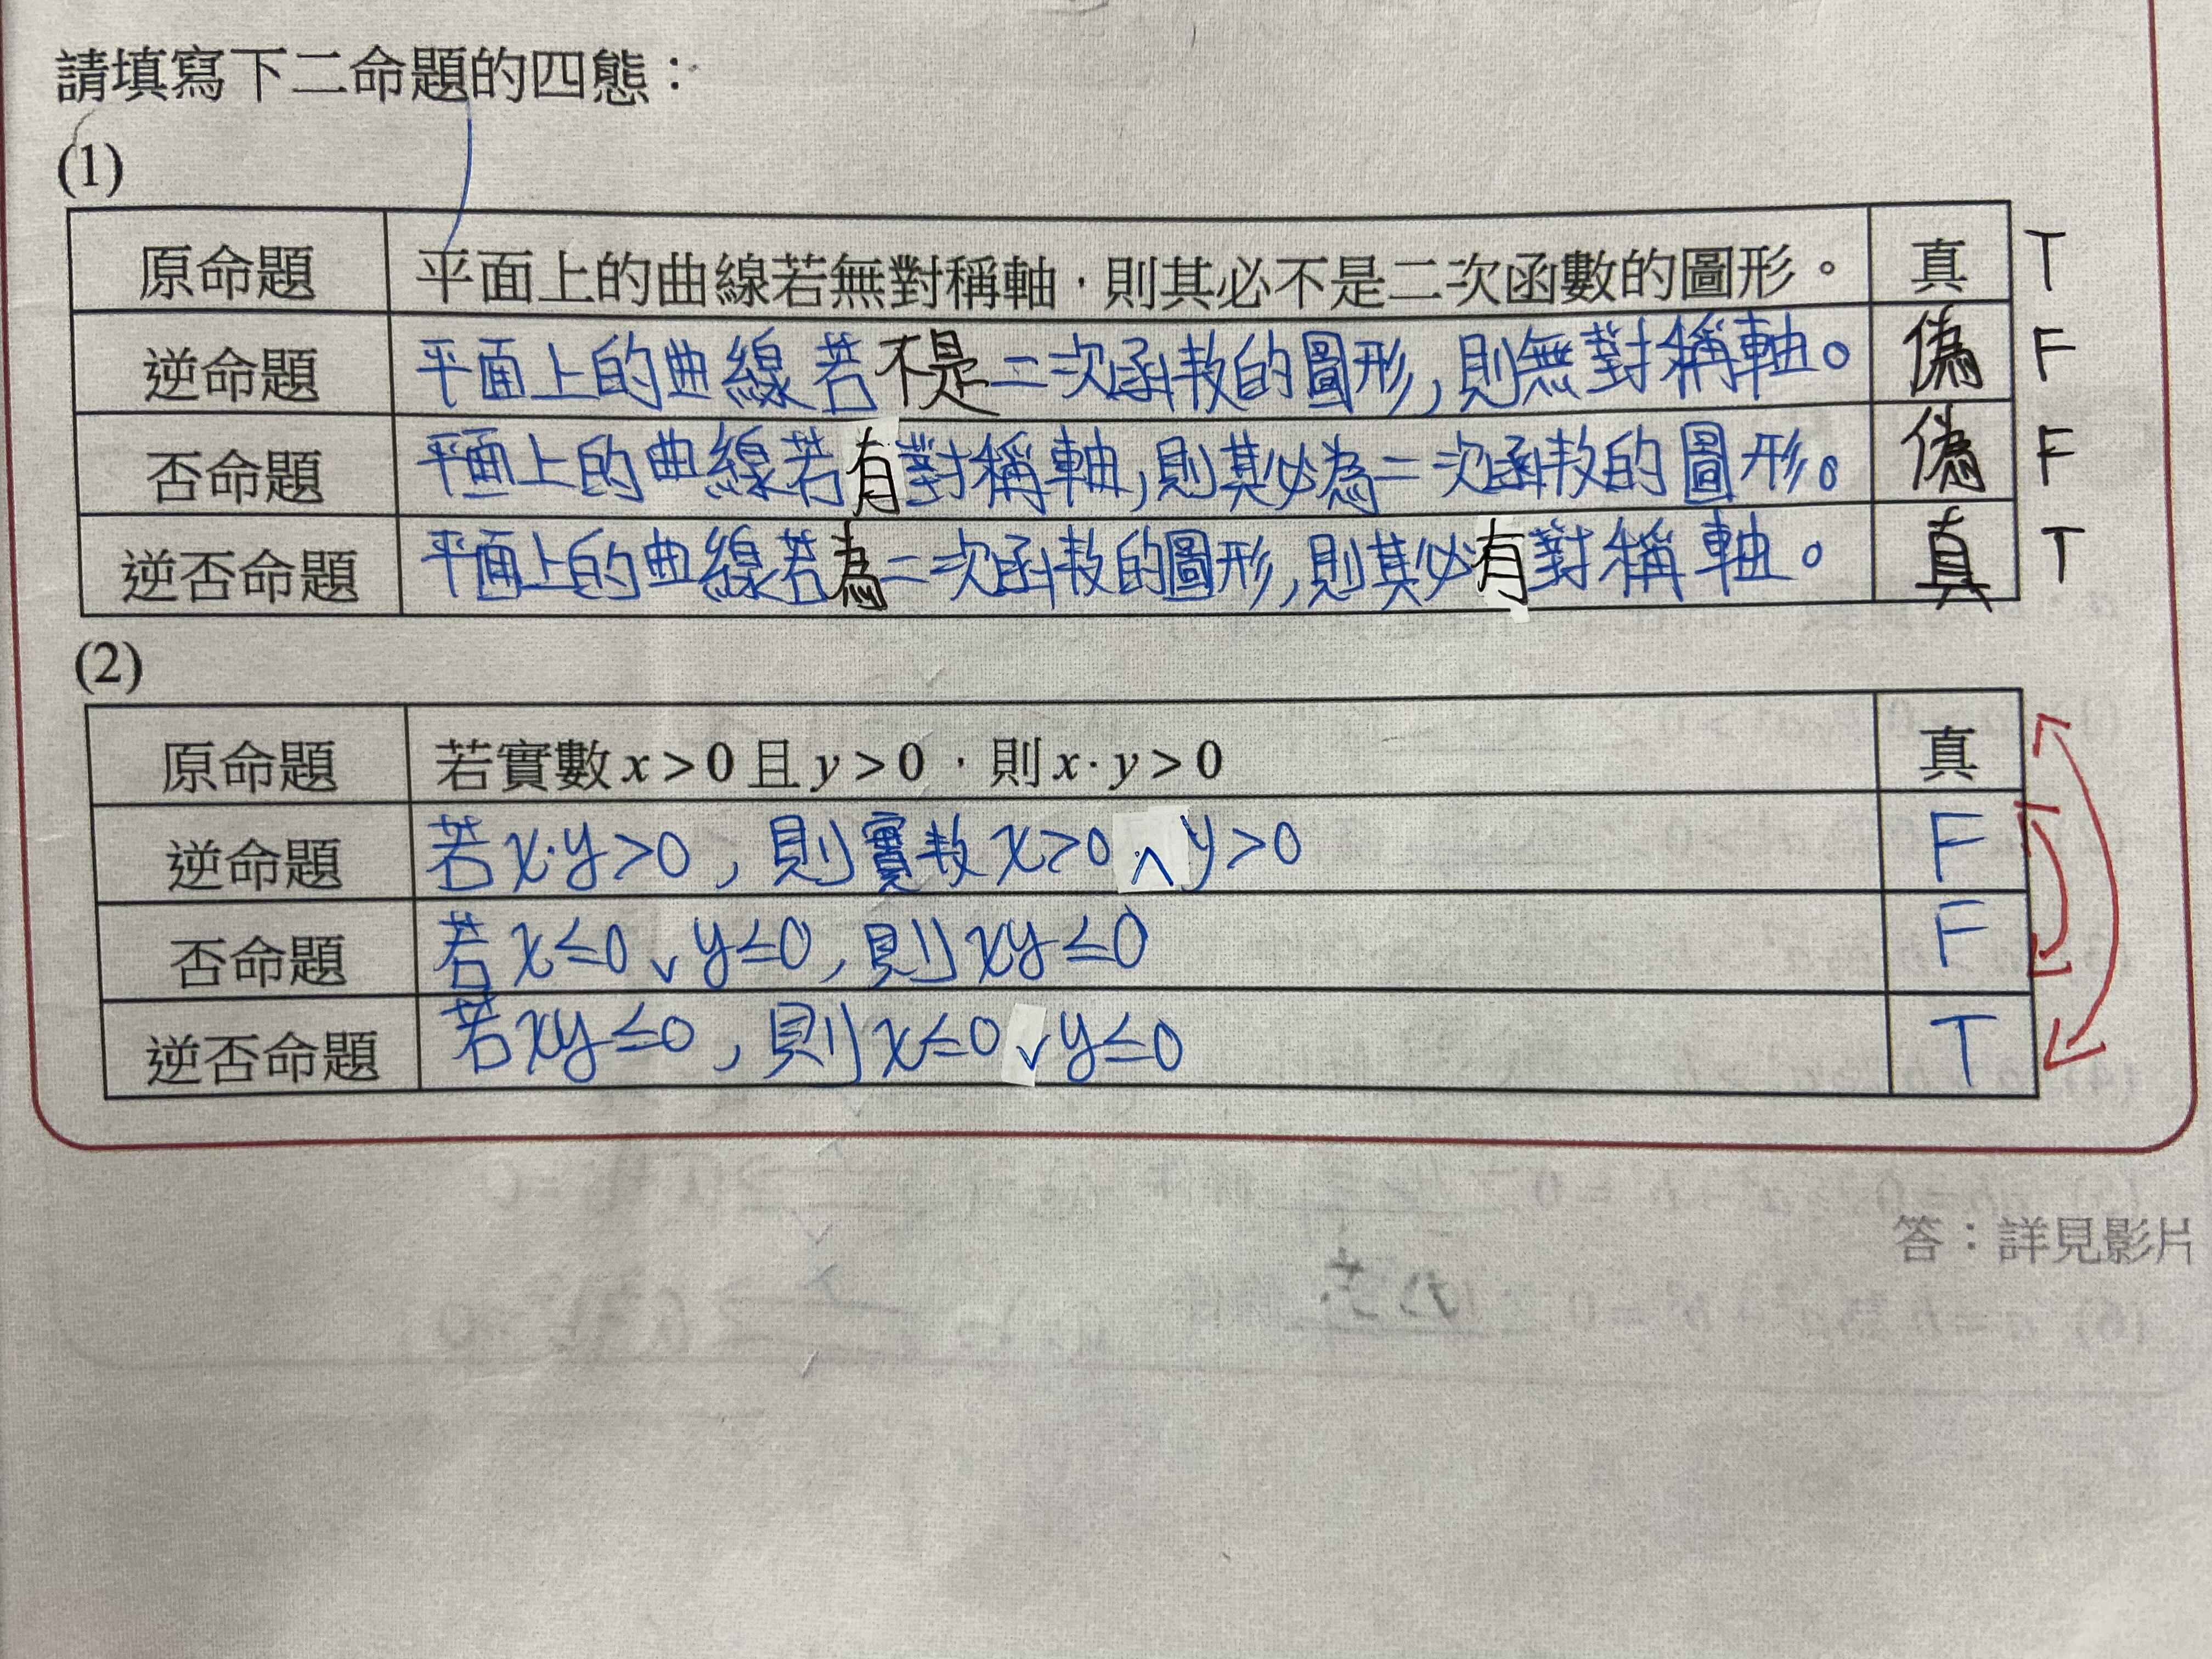 請填寫下二命題的四態：
(1)
原命題 平面上的曲線若無對稱軸，則其必不是二次函數的圖形。 真 T
逆命題 平面上的曲線若不是二次函数的圖形,則無對稱軸。 偽 F
否命題 平面上的曲線若有對稱軸,則其必為二次函数的圖形。 偽 F
逆否命題 平面上的曲線若為二次函数的圖形,則其必有對稱軸。 真 T
(2)
原命題 若實數 x > 0 且 y > 0，則 x · y > 0 真
逆命題 若 x·y>0, 則實数 x>0 ∧ y>0 F
否命題 若 x≤0 ∨ y≤0, 則 xy≤0 F
逆否命題 若 xy≤0, 則 x≤0 ∨ y≤0 T
答：詳見影片